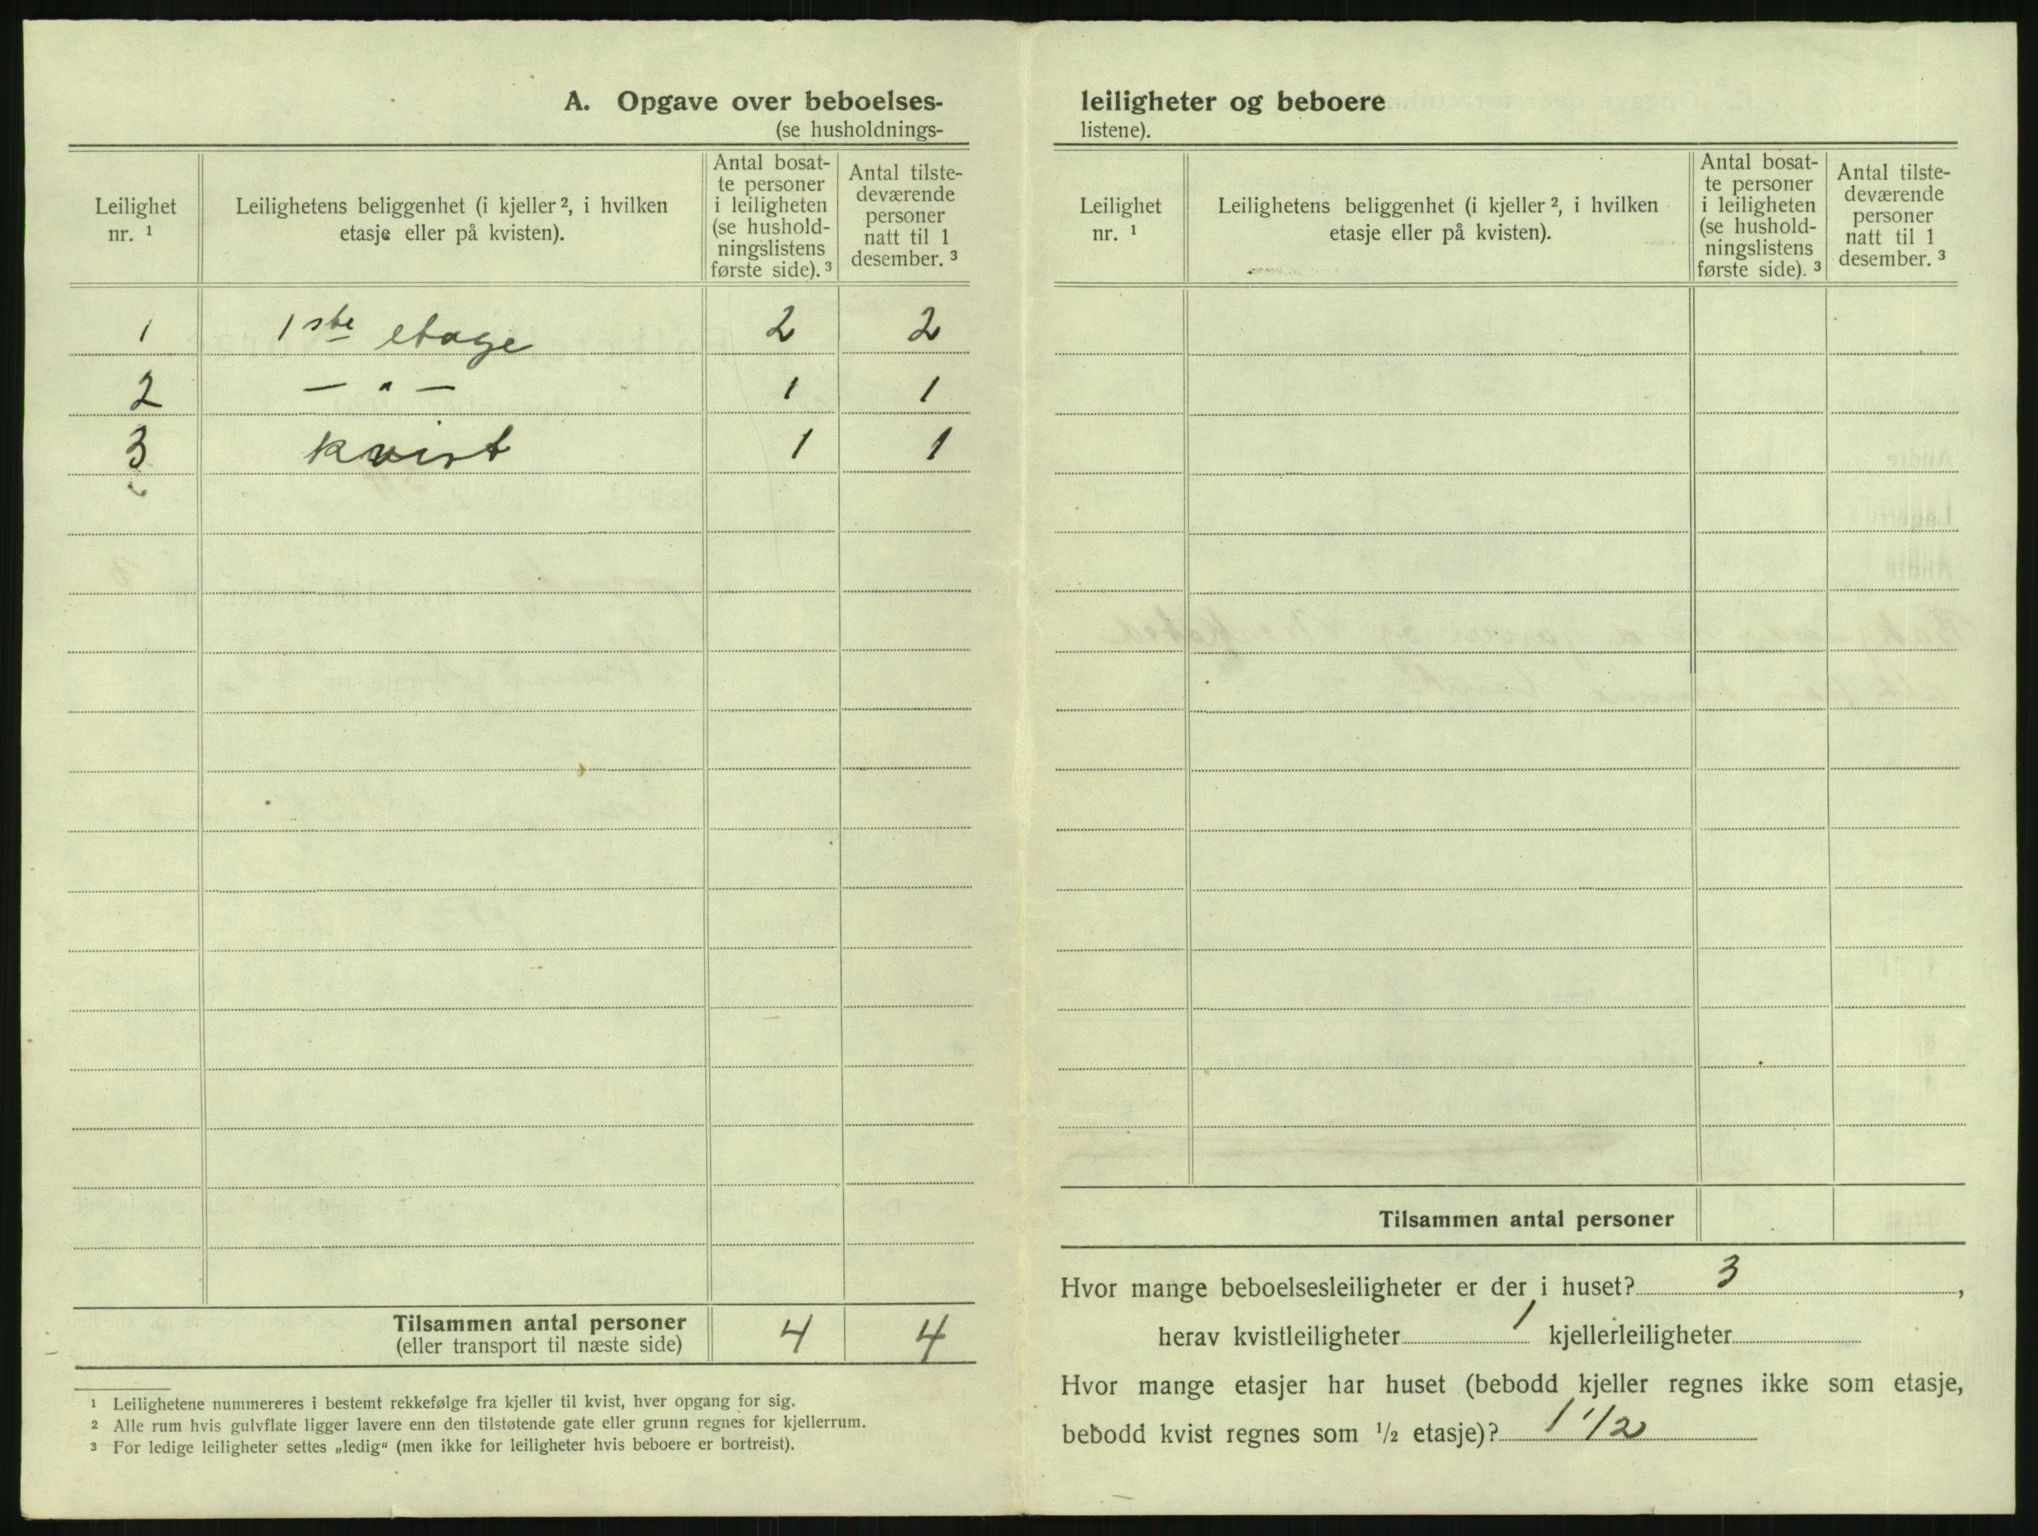 A. Opgave over beboelses-
(se husholdnings-
Leilighet nr. ¹
Leilighetens beliggenhet (i kjeller ², i hvilken etasje eller på kvisten).
Antal bosat-
te personer
i leiligheten
(se hushold-
ningslistens
første side). ³
Antal tilste-
deværende
personer
natt til 1
desember. ³
1 1ste etage 2 2
2 — " — 1 1
3 kvist 1 1
Tilsammen antal personer 4 4
(eller transport til næste side)
¹ Leilighetene nummereres i bestemt rekkefølge fra kjeller til kvist, hver opgang for sig.
² Alle rum hvis gulvflate ligger lavere enn den tilstøtende gate eller grunn regnes for kjellerrum.
³ For ledige leiligheter settes „ledig“ (men ikke for leiligheter hvis beboere er bortreist).
leiligheter og beboere
listene).
Leilighet nr. ¹
Leilighetens beliggenhet (i kjeller ², i hvilken etasje eller på kvisten).
Antal bosat-
te personer
i leiligheten
(se hushold-
ningslistens
første side). ³
Antal tilste-
deværende
personer
natt til 1
desember. ³
Tilsammen antal personer
Hvor mange beboelsesleiligheter er der i huset? 3 ,
herav kvistleiligheter 1 kjellerleiligheter
Hvor mange etasjer har huset (bebodd kjeller regnes ikke som etasje,
bebodd kvist regnes som ½ etasje)? 1 1/2